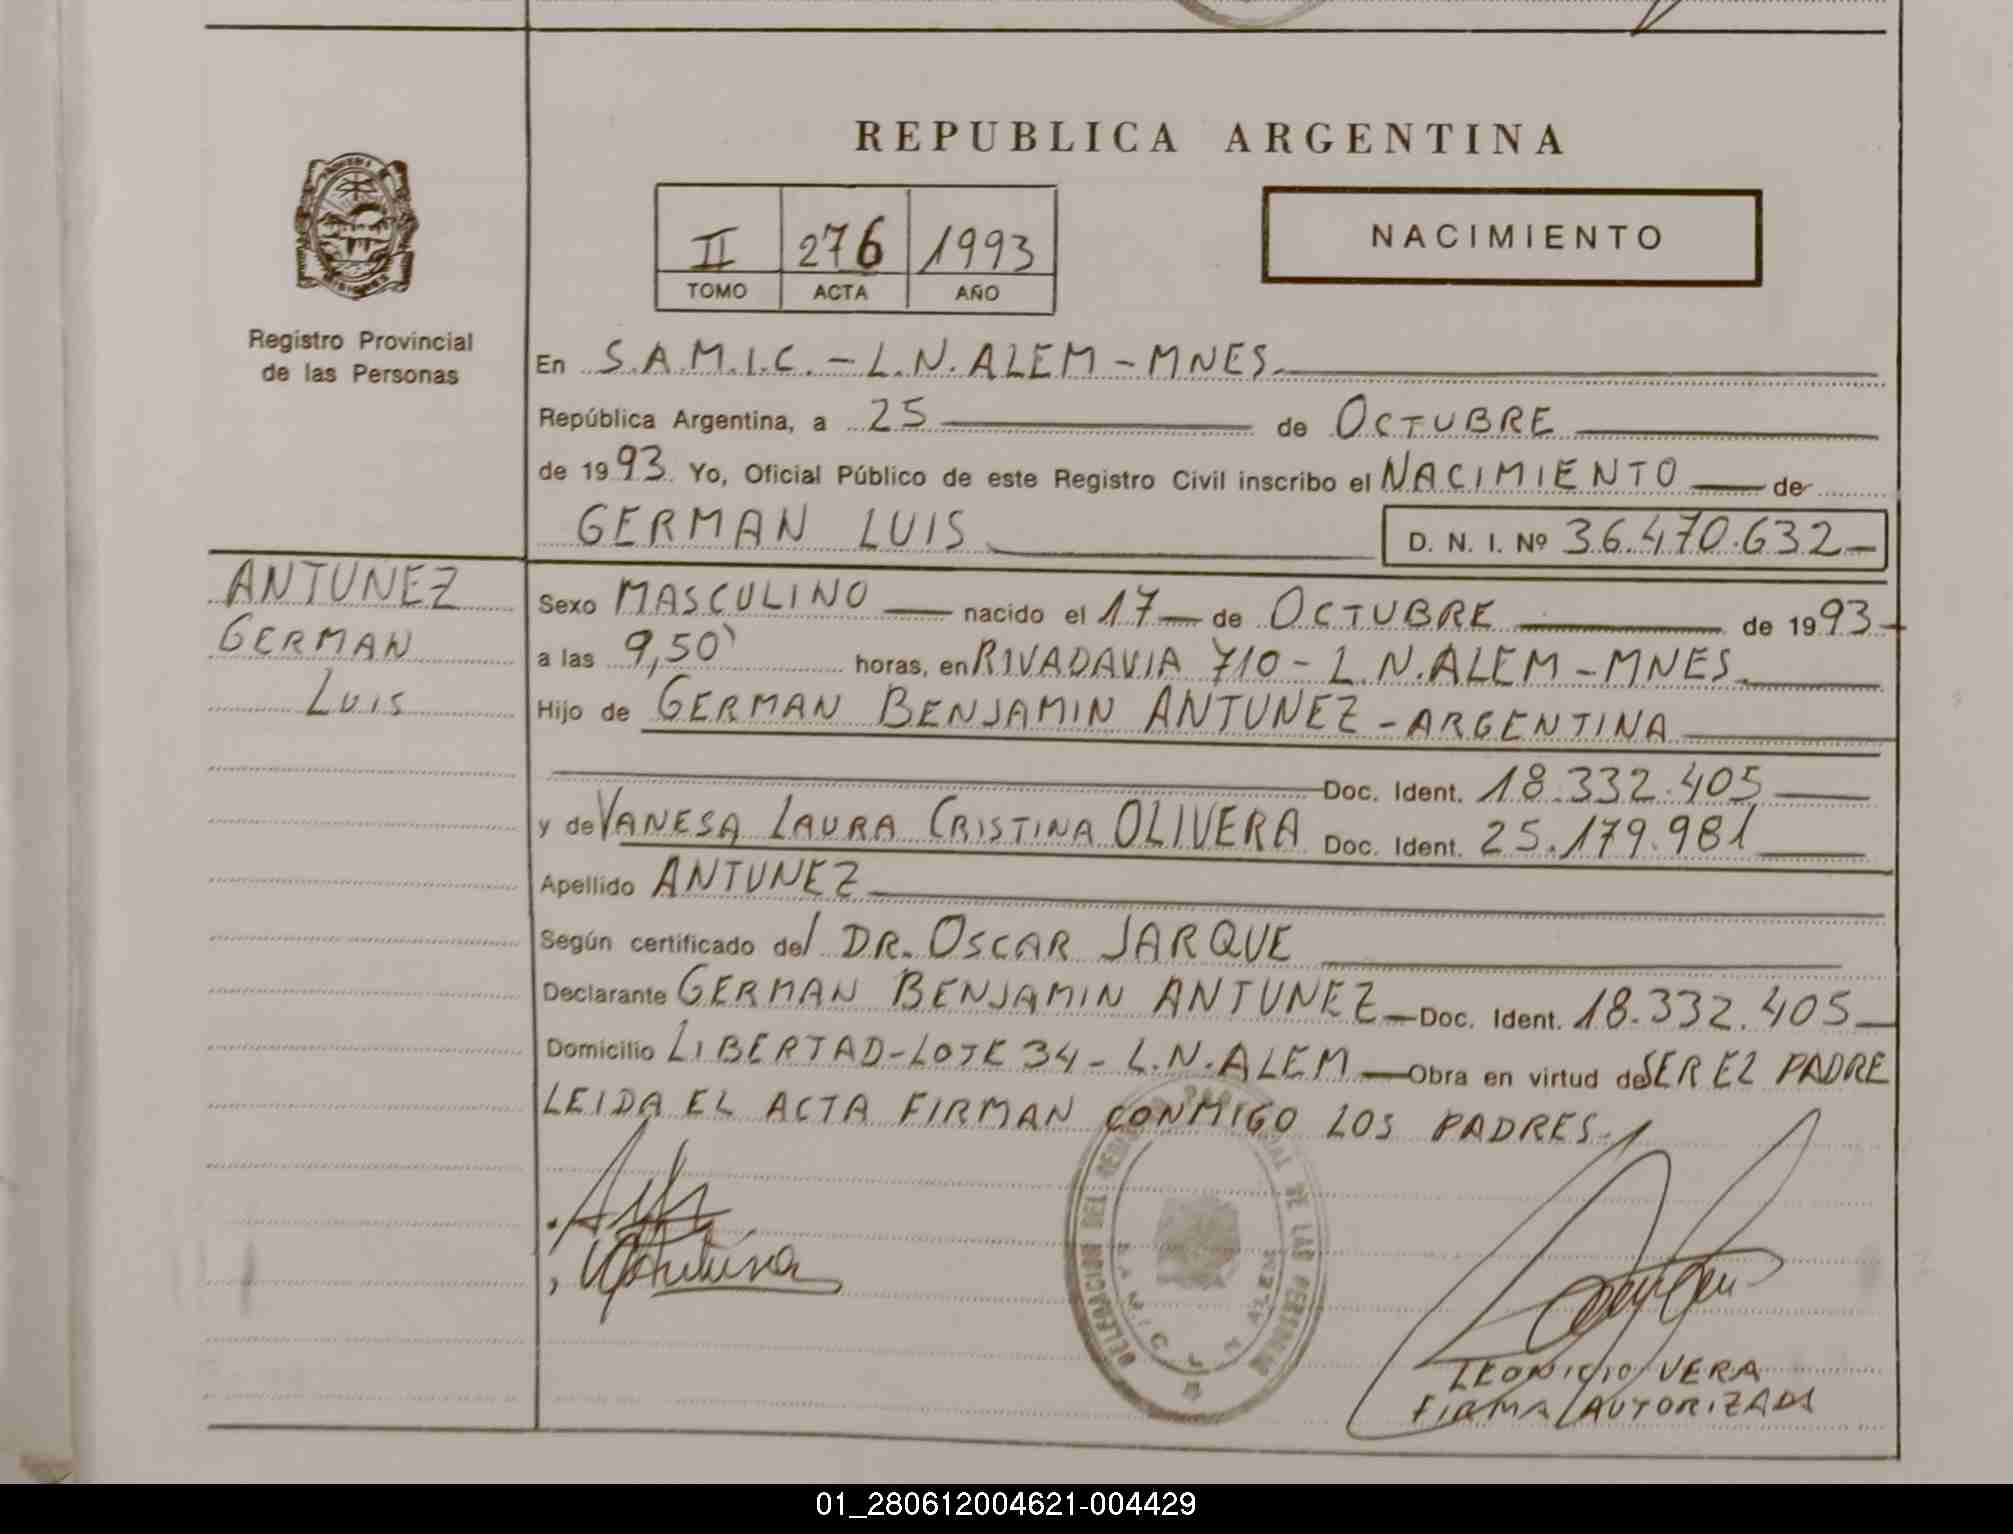 REPUBLICA ARGENTINA
II 276 1993
TOMO ACTA AÑO
NACIMIENTO
Registro Provincial
de las Personas
En S.A.M.I.C. - L.N. ALEM - MNES.
República Argentina, a 25 de OCTUBRE
de 1993. Yo, Oficial Público de este Registro Civil inscribo el NACIMIENTO de
GERMAN LUIS
D. N. I. Nº 36.470.632
ANTUNEZ
GERMAN
LUIS
Sexo MASCULINO nacido el 17 de OCTUBRE de 1993
a las 9,50' horas, en RIVADAVIA 710 - L.N. ALEM - MNES.
Hijo de GERMAN BENJAMIN ANTUNEZ - ARGENTINA
Doc. Ident. 18.332.405
y de VANESA LAURA CRISTINA OLIVERA Doc. Ident. 25.179.981
Apellido ANTUNEZ
Según certificado del DR. OSCAR JARQUE
Declarante GERMAN BENJAMIN ANTUNEZ Doc. Ident. 18.332.405
Domicilio LIBERTAD - LOTE 34 - L.N. ALEM Obra en virtud de SER EL PADRE
LEIDA EL ACTA FIRMAN CONMIGO LOS PADRES.
DELEGACION DEL REGISTRO PROVINCIAL DE LAS PERSONAS
LEONICIO VERA
FIRMA AUTORIZADA
01_280612004621-004429